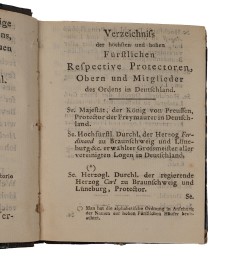 Verzeichniſs
der höchſten und hohen
Fürſtlichen
Reſpective Protectoren,
Obern und Mitglieder
des Ordens in Deutſchland.
Se. Majeſtät, der König von Preuſſen,
Protector der Freymaurer in Deutſch-
land.
Se. Hochfürſtl. Durchl. der Herzog Fer-
dinand zu Braunſchweig und Lüne-
burg &c. erwählter Grofsmeiſter aller
vereinigten Logen in Deutſchland.
(*)
Se. Herzogl. Durchl. der regierende
Herzog Carl zu Braunſchweig und
Lüneburg, Protector.
Se.
(*) Man hat die alphabetiſche Ordnung in
der Namen der hohen Fürſtlichen Häuſer